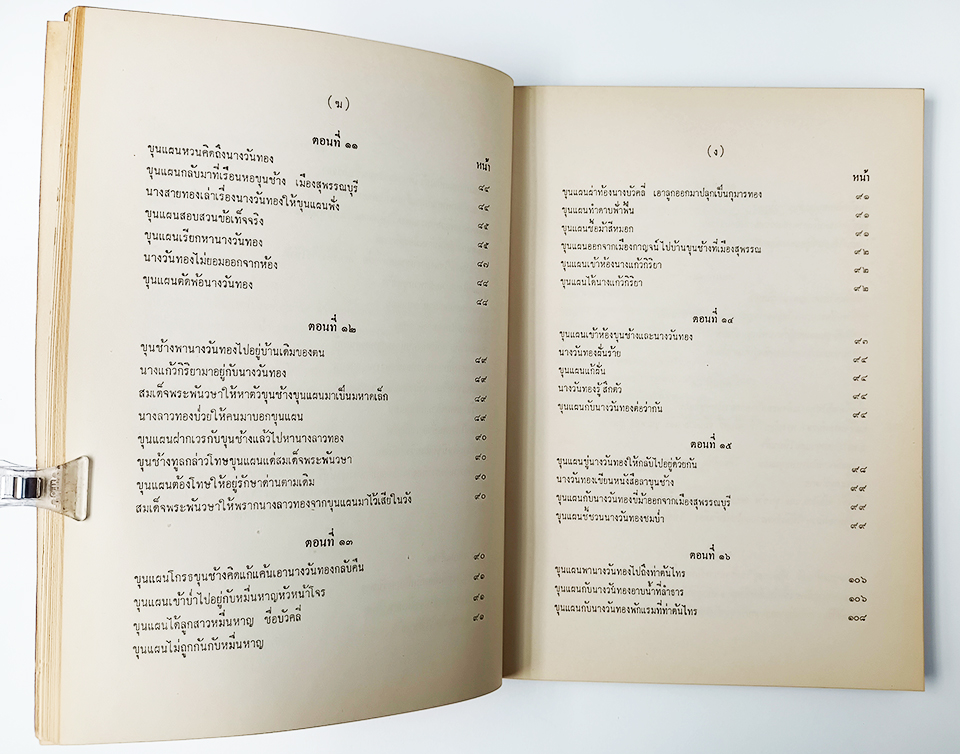 (ฆ)
ตอนที่ ๑๑
หน้า
ขุนแผนหวนคิดถึงนางวันทอง ๘๔
ขุนแผนกลับมาที่เรือนหอขุนช้าง เมืองสุพรรณบุรี ๘๕
นางสายทองเล่าเรื่องนางวันทองให้ขุนแผนฟัง ๘๕
ขุนแผนสอบสวนข้อเท็จจริง ๘๕
ขุนแผนเรียกหานางวันทอง ๘๗
นางวันทองไม่ยอมออกจากห้อง ๘๘
ขุนแผนตัดพ้อนางวันทอง ๘๘
ตอนที่ ๑๒
ขุนช้างพานางวันทองไปอยู่บ้านเดิมของตน ๘๙
นางแก้วกิริยามาอยู่กับนางวันทอง ๘๙
สมเด็จพระพันวษาให้หาตัวขุนช้างขุนแผนมาเป็นมหาดเล็ก ๘๙
นางลาวทองป่วยให้คนมาบอกขุนแผน ๘๙
ขุนแผนฝากเวรกับขุนช้างแล้วไปหานางลาวทอง ๙๐
ขุนช้างทูลกล่าวโทษขุนแผนแด่สมเด็จพระพันวษา ๙๐
ขุนแผนต้องโทษให้อยู่รักษาด่านตามเดิม ๙๐
สมเด็จพระพันวษาให้พรากนางลาวทองจากขุนแผนมาไว้เสียในวัง ๙๐
ตอนที่ ๑๓
ขุนแผนโกรธขุนช้างคิดแก้แค้นเอานางวันทองกลับคืน ๙๐
ขุนแผนเข้าป่าไปอยู่กับหมื่นหาญหัวหน้าโจร ๙๑
ขุนแผนได้ลูกสาวหมื่นหาญ ชื่อบัวคลี่ ๙๑
ขุนแผนไม่ถูกกันกับหมื่นหาญ
(ง)
หน้า
ขุนแผนผ่าท้องนางบัวคลี่ เอาลูกออกมาปลุกเป็นกุมารทอง ๙๑
ขุนแผนทำดาบฟ้าฟื้น ๙๑
ขุนแผนซื้อม้าสีหมอก ๙๑
ขุนแผนออกจากเมืองกาญจน์ไปบ้านขุนช้างที่เมืองสุพรรณ ๙๒
ขุนแผนเข้าห้องนางแก้วกิริยา ๙๒
ขุนแผนได้นางแก้วกิริยา ๙๒
ตอนที่ ๑๔
ขุนแผนเข้าห้องขุนช้างและนางวันทอง ๙๓
นางวันทองฝันร้าย ๙๔
ขุนแผนแก้ฝัน ๙๔
นางวันทองรู้สึกตัว ๙๔
ขุนแผนกับนางวันทองต่อว่ากัน ๙๔
ตอนที่ ๑๕
ขุนแผนขู่นางวันทองให้กลับไปอยู่ด้วยกัน ๙๘
นางวันทองเขียนหนังสือลาขุนช้าง ๙๙
ขุนแผนกับนางวันทองขี่ม้าออกจากเมืองสุพรรณบุรี ๙๙
ขุนแผนชี้ชวนนางวันทองชมป่า ๙๙
ตอนที่ ๑๖
ขุนแผนพานางวันทองไปถึงท่าต้นไทร ๑๐๖
ขุนแผนกับนางวันทองอาบน้ำที่ลำธาร ๑๐๖
ขุนแผนกับนางวันทองพักแรมที่ท่าต้นไทร ๑๐๘